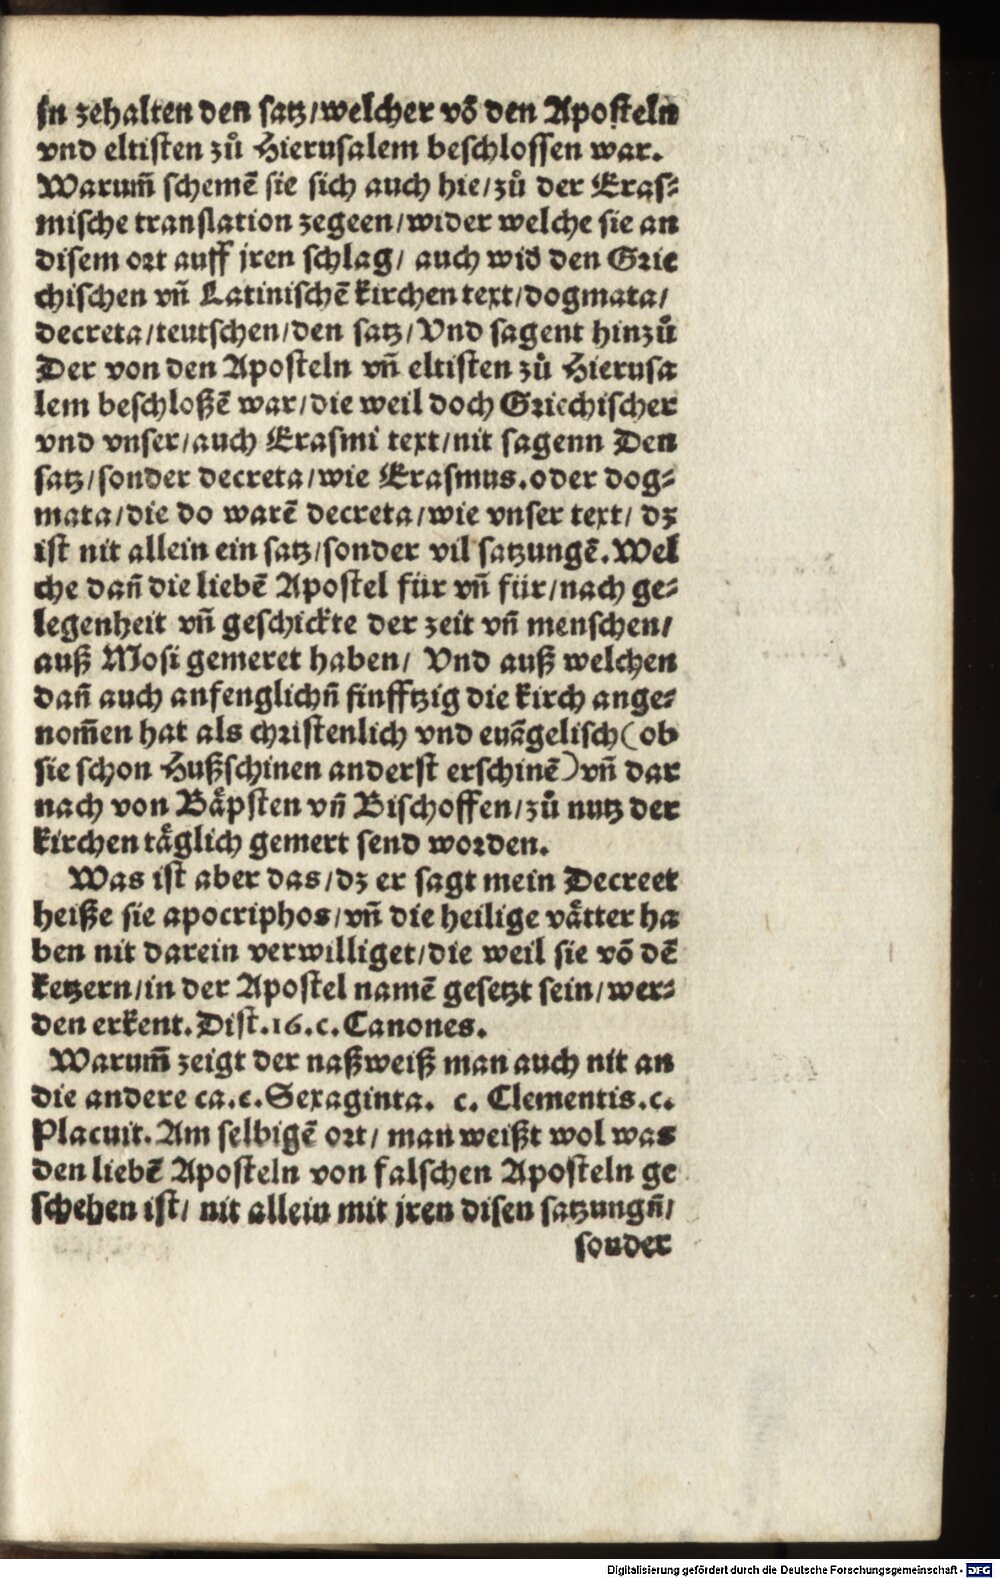 jn zehalten den satz/welcher võ den Aposteln
vnd eltisten zů Hierusalem beschlossen war.
Warum̃ schemẽ sie sich auch hie/zů der Eras⸗
mische translation zegeen/wider welche sie an
disem ort auff jren schlag/ auch wid den Grie
chischen vñ Latinischẽ kirchen text/dogmata/
decreta/teutschen/den satz/Vnd sagent hinzů
Der von den Aposteln vñ eltisten zů Hierusa
lem beschloßẽ war/die weil doch Griechischer
vnd vnser/auch Erasmi text/nit sagenn Den
satz/sonder decreta/wie Erasmus.oder dog⸗
mata/die do warẽ decreta/wie vnser text/ dz
ist nit allein ein satz/sonder vil satzungẽ.Wel
che dañ die liebẽ Apostel für vñ für/nach ge⸗
legenheit vñ geschickte der zeit vñ menschen/
auß Mosi gemeret haben/ Vnd auß welchen
dañ auch anfenglichñ finfftzig die kirch ange⸗
nom̃en hat als christenlich vnd euãgelisch(ob
sie schon Hußschinen anderst erschinẽ)vñ dar
nach von Bäpsten vñ Bischoffen/zů nutz der
kirchen täglich gemert send worden.
Was ist aber das/dz er sagt mein Decreet
heiße sie apocriphos/vñ die heilige vätter ha
ben nit darein verwilliget/die weil sie võ dẽ
ketzern/in der Apostel namẽ gesetzt sein/wer⸗
den erkent.Dist.16.c.Canones.
Warum̃ zeigt der naßweiß man auch nit an
die andere ca.c.Sexaginta. c. Clementis.c.
Placuit.Am selbigẽ ort/ man weißt wol was
den liebẽ Aposteln von falschen Aposteln ge
schehen ist/ nit allein mit jren disen satzungñ/
sonder
Digitalisierung gefördert durch die Deutsche Forschungsgemeinschaft - DFG